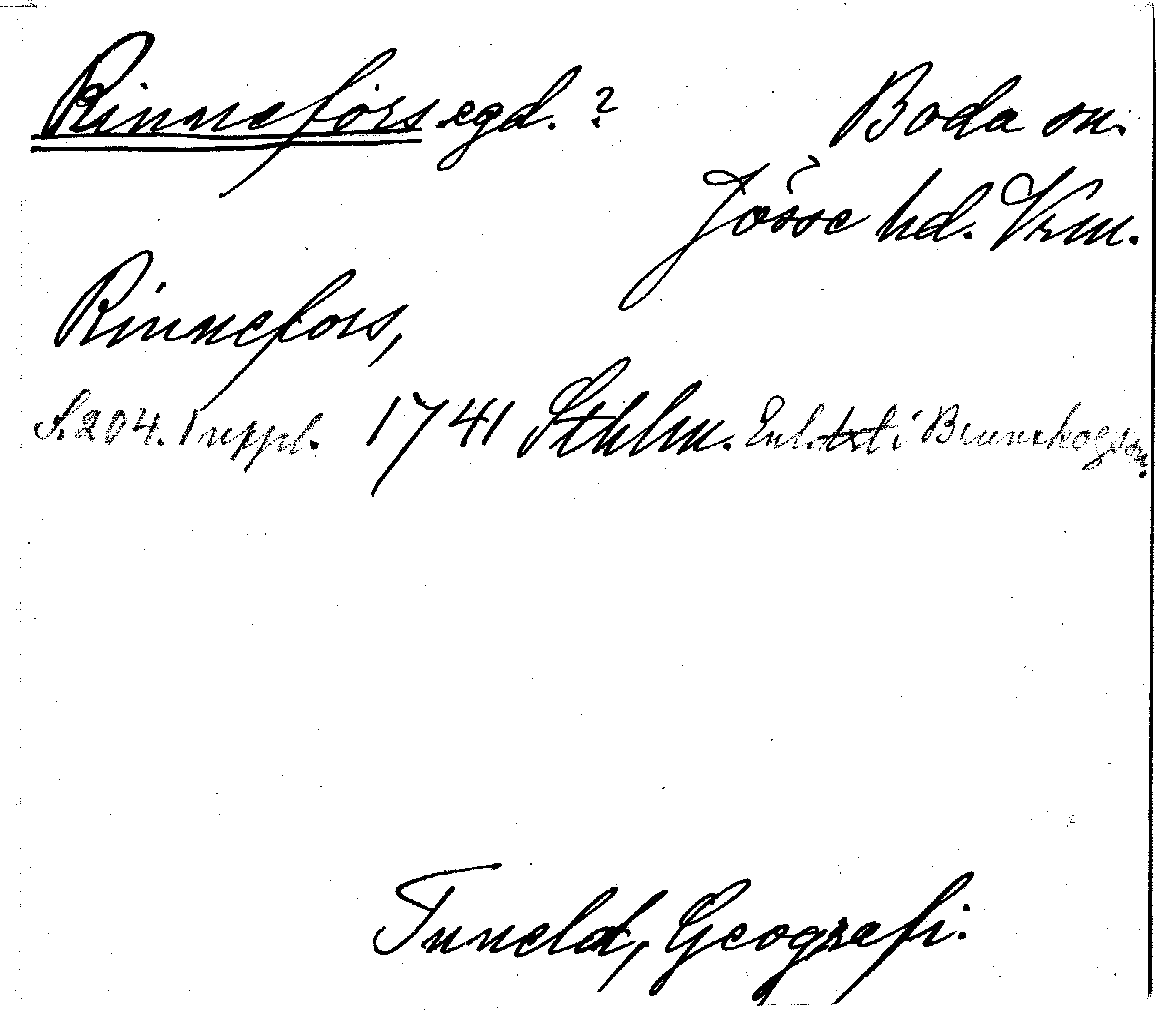 Rinnefors egd. ?
Boda sn.
Jösse hd. Vrm.
Rinnefors,
S. 204. 1 uppl. 1741 Sthlm. Enl. txt i Brunskogs sn.
Tuneld, Geografi.